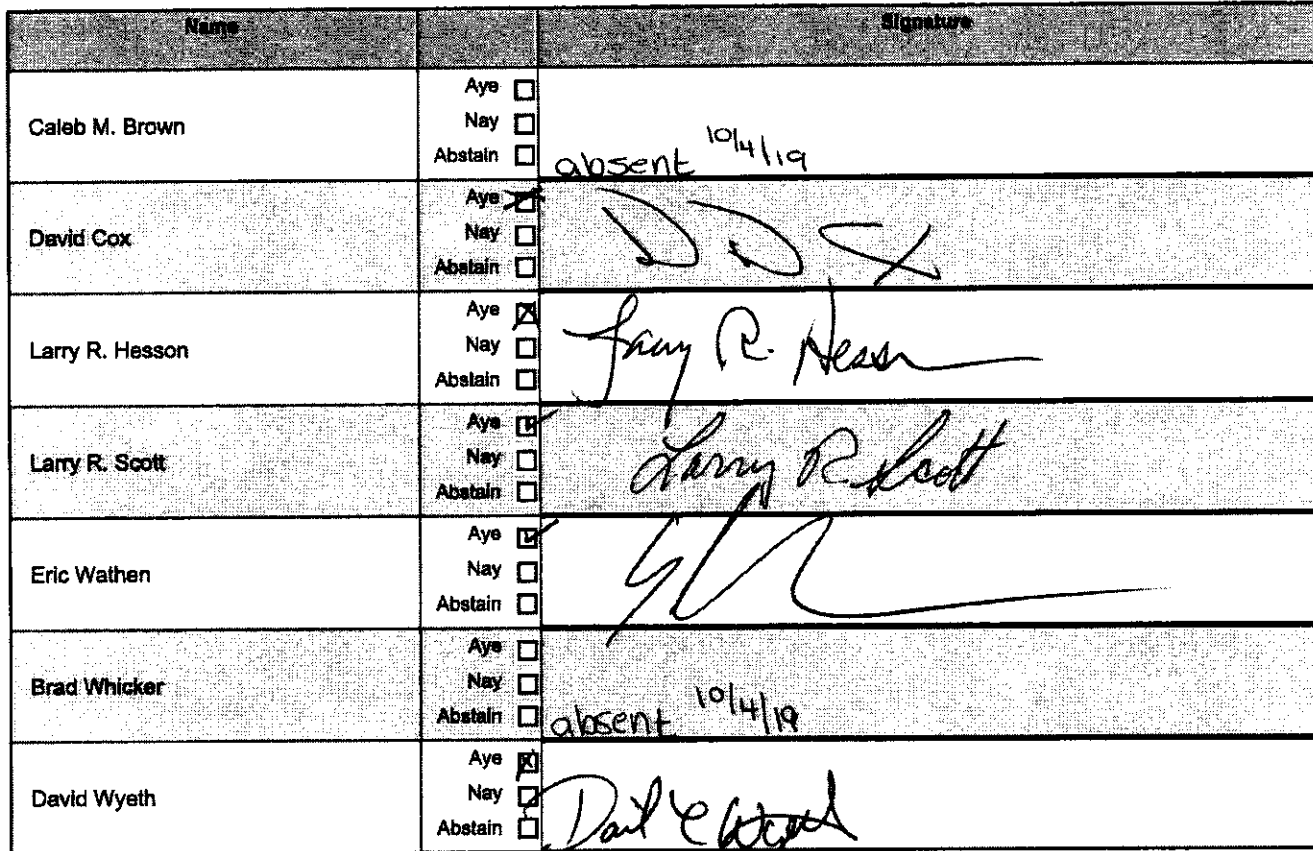 Name Signature
Caleb M. Brown
Aye ☐
Nay ☐
Abstain ☐
absent 10/4/19
David Cox
Aye ☒
Nay ☐
Abstain ☐
Larry R. Hesson
Aye ☒
Nay ☐
Abstain ☐
Larry R. Hesson
Larry R. Scott
Aye ☑
Nay ☐
Abstain ☐
Larry R Scott
Eric Wathen
Aye ☑
Nay ☐
Abstain ☐
Brad Whicker
Aye ☐
Nay ☐
Abstain ☐
absent 10/4/19
David Wyeth
Aye ☒
Nay ☐
Abstain ☐